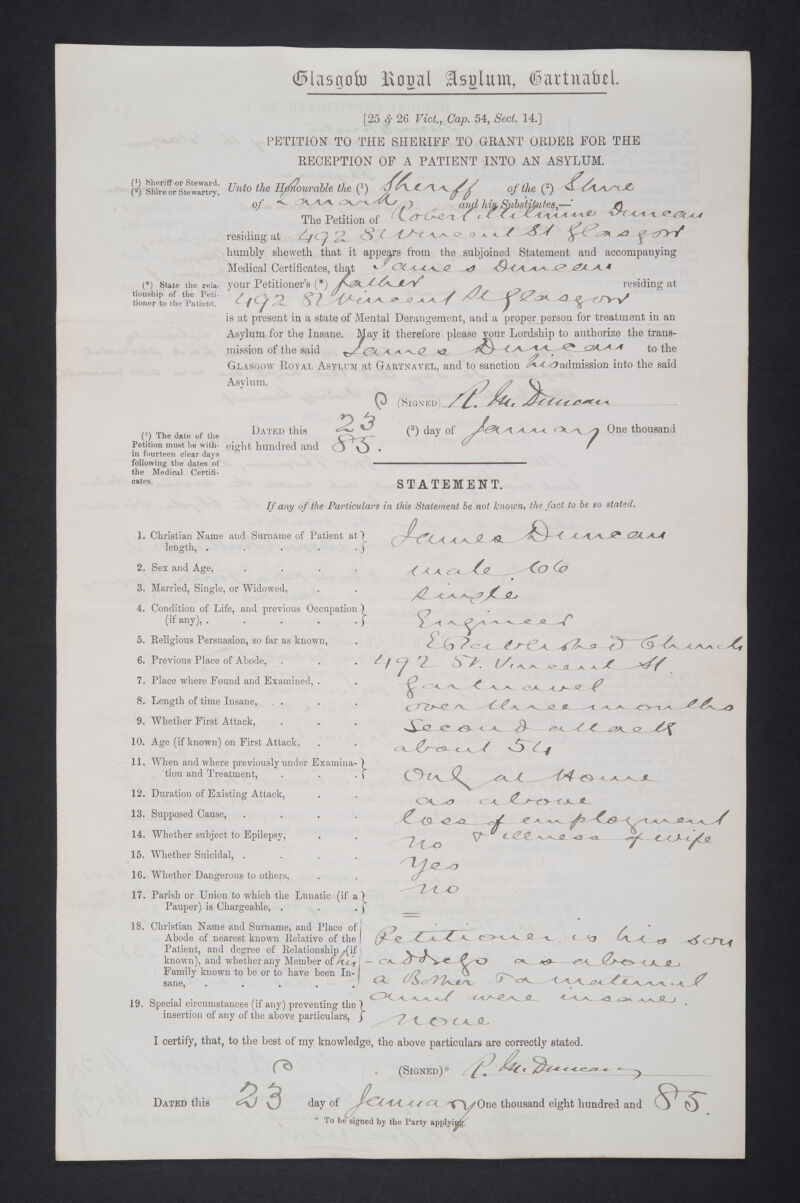 Glasgow Royal Asylum, Gartnabel.
[25 & 26 Vict., Cap. 54, Sect. 14.]
PETITION TO THE SHERIFF TO GRANT ORDER FOR THE
RECEPTION OF A PATIENT INTO AN ASYLUM.
(¹) Sheriff or Steward.
(²) Shire or Stewartry.
Unto the Honourable the (¹) Sheriff of the (²) Shire
of Lanark and his Substitutes,—
The Petition of Robert Milmine Duncan
residing at 492 St Vincent St Glasgow
humbly sheweth that it appears from the subjoined Statement and accompanying
Medical Certificates, that James Duncan
(*) State the rela-
tionship of the Peti-
tioner to the Patient.
your Petitioner's (*) father residing at
492 St Vincent St Glasgow
is at present in a state of Mental Derangement, and a proper person for treatment in an
Asylum for the Insane. May it therefore please your Lordship to authorize the trans-
mission of the said James Duncan to the
GLASGOW ROYAL ASYLUM at GARTNAVEL, and to sanction his admission into the said
Asylum.
(SIGNED) R. M. Duncan
(³) The date of the
Petition must be with-
in fourteen clear days
following the dates of
the Medical Certifi-
cates.
DATED this 23 (³) day of January One thousand
eight hundred and 85.
STATEMENT.
If any of the Particulars in this Statement be not known, the fact to be so stated.
1. Christian Name and Surname of Patient at
length, . . . . . James Duncan
2. Sex and Age, . . . . male 66
3. Married, Single, or Widowed, . . single
4. Condition of Life, and previous Occupation
(if any), . . . . . Engineer
5. Religious Persuasion, so far as known, . Established Church
6. Previous Place of Abode, . . . 492 St. Vincent St
7. Place where Found and Examined, . . Gartnavel
8. Length of time Insane, . . . . over three months
9. Whether First Attack, . . . Second attack
10. Age (if known) on First Attack, . . about 54
11. When and where previously under Examina-
tion and Treatment, . . . Only at Home
12. Duration of Existing Attack, . . as above
13. Supposed Cause, . . . . loss of employment
& illness of wife
14. Whether subject to Epilepsy, . . No
15. Whether Suicidal, . . . . Yes
16. Whether Dangerous to others, . . no
17. Parish or Union to which the Lunatic (if a
Pauper) is Chargeable, . . . =
18. Christian Name and Surname, and Place of
Abode of nearest known Relative of the
Patient, and degree of Relationship (if Petitioner is his son
known), and whether any Member of his - address as above
Family known to be or to have been In-
sane, . . . . . a Bother & a maternal
aunt were insane.
19. Special circumstances (if any) preventing the
insertion of any of the above particulars, None
I certify, that, to the best of my knowledge, the above particulars are correctly stated.
(SIGNED)* R. M. Duncan
DATED this 23 day of January One thousand eight hundred and 85.
* To be signed by the Party applying.